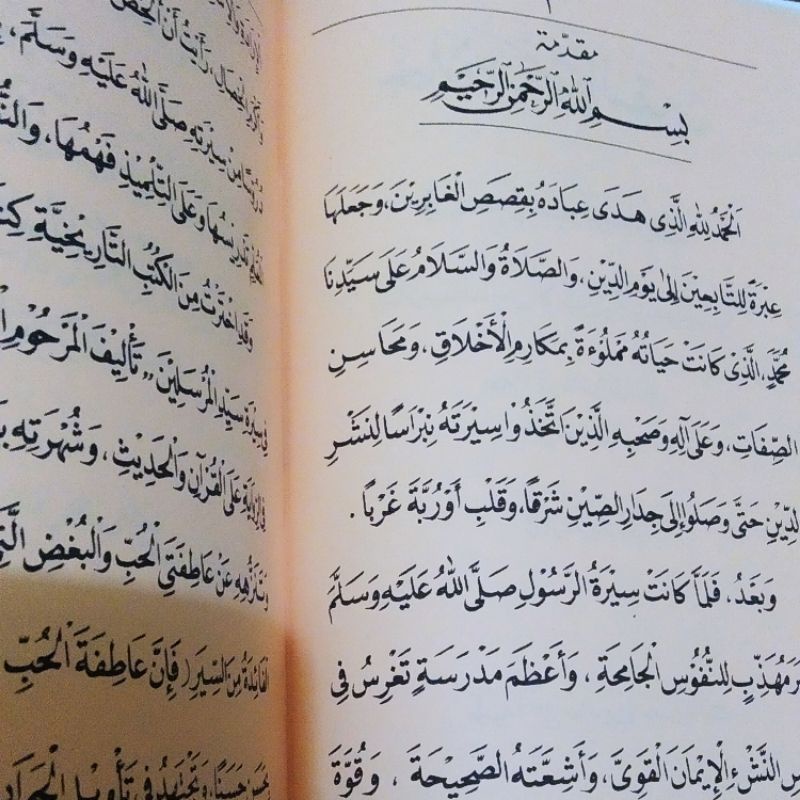 ١
مقدّمة
بِسْمِ اللهِ الرَّحْمٰنِ الرَّحِيْمِ
اَلْحَمْدُ لِلّٰهِ الَّذِى هَدَى عِبَادَهُ بِقِصَصِ الْغَابِرِيْنَ، وَجَعَلَهَا
عِبْرَةً لِلتَّابِعِيْنَ إِلَى يَوْمِ الدِّيْنِ، وَالصَّلَاةُ وَالسَّلَامُ عَلَى سَيِّدِنَا
مُحَمَّدٍ، الَّذِىْ كَانَتْ حَيَاتُهُ مَمْلُوْءَةً بِمَكَارِمِ الْأَخْلَاقِ، وَمَحَاسِنِ
الصِّفَاتِ، وَعَلَى آلِهِ وَصَحْبِهِ الَّذِيْنَ اتَّخَذُوْا سِيْرَتَهُ نِبْرَاسًا لِنَشْرِ
الدِّيْنِ حَتَّى وَصَلُوْا إِلَى جِدَارِ الصِّيْنِ شَرْقًا، وَقَلْبِ أَوْرُبَّةَ غَرْبًا.
وَبَعْدُ، فَلَمَّا كَانَتْ سِيْرَةُ الرَّسُوْلِ صَلَّى اللهُ عَلَيْهِ وَسَلَّمَ
مُهَذِّبٍ لِلنُّفُوْسِ الْجَامِحَةِ، وَأَعْظَمَ مَدْرَسَةٍ تَغْرِسُ فِى
النَّشْءِ الْإِيْمَانَ الْقَوِىَّ، وَأَشِعَّتَهُ الصَّحِيْحَةَ، وَقُوَّةَ
رَأَيْتُ أَنَّ
سِيْرَتِهِ صَلَّى اللهُ عَلَيْهِ وَسَلَّمَ،
وَعَلَى التِّلْمِيْذِ فَهْمُهَا،
وَقَدِ اخْتَرْتُ مِنَ الْكُتُبِ التَّارِيْخِيَّةِ
سِيْرَةِ سَيِّدِ الْمُرْسَلِيْنَ" تَأْلِيْفَ الْمَرْحُوْمِ
عَلَى الْقُرْآنِ وَالْحَدِيْثِ، وَشُهْرَتِهِ
وَتَنَزُّهِهِ عَنْ عَاطِفَتَىِ الْحُبِّ وَالْبُغْضِ
الْفَائِدَةُ مِنَ السِّيَرِ (فَإِنَّ عَاطِفَةَ الْحُبِّ
حَسَنًا، وَتَجْتَهِدُ فِى تَأْوِيْلِ